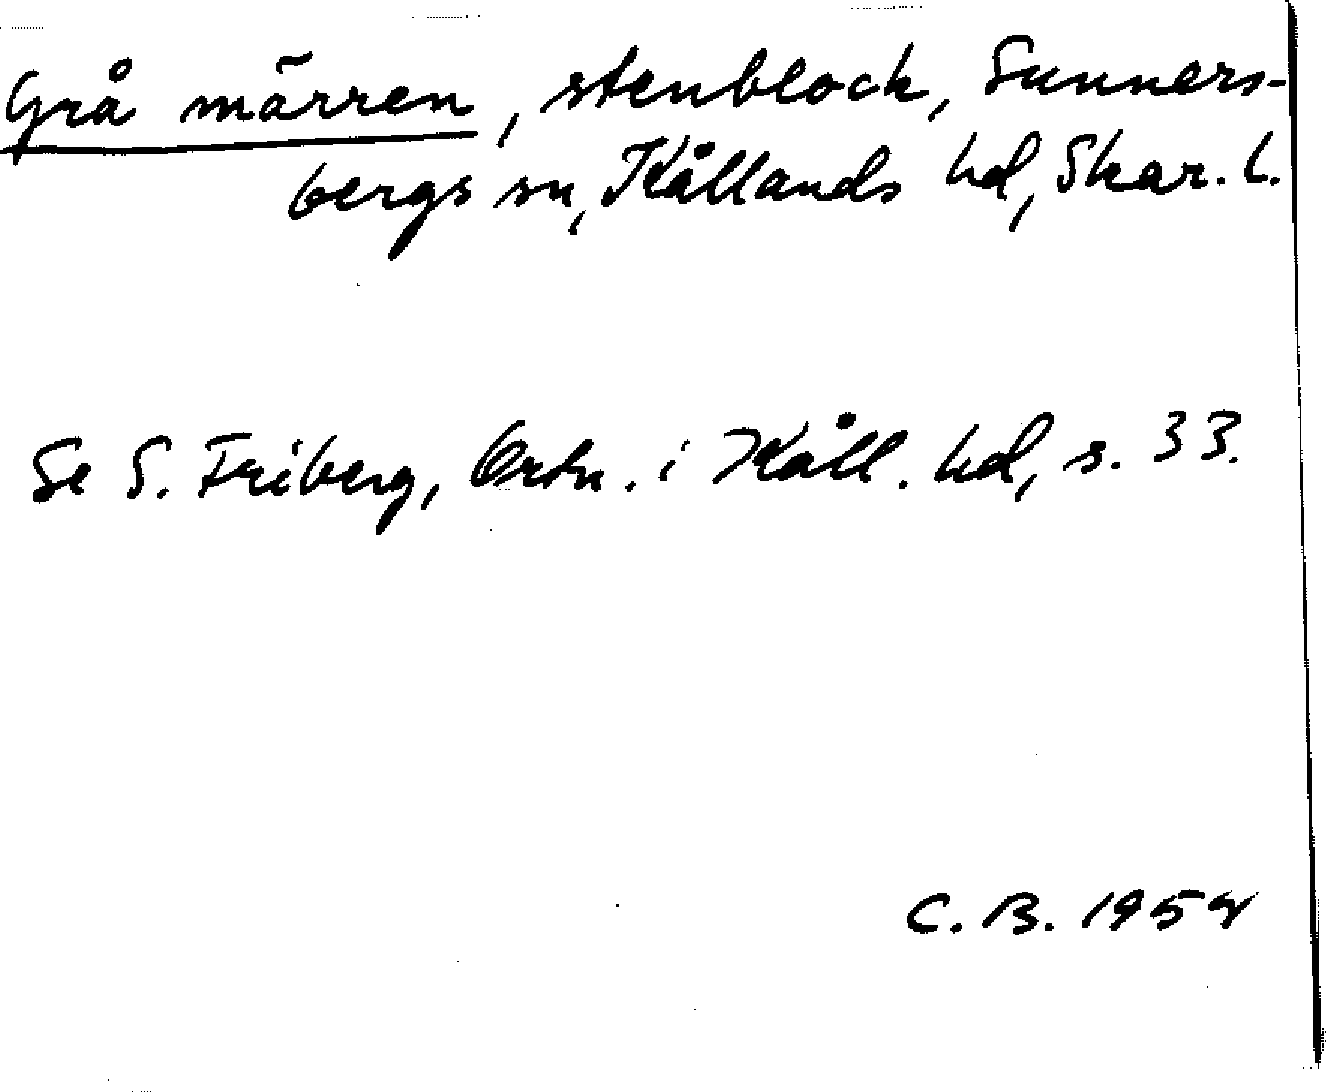 Grå märren, stenblock, Sunners-
bergs sn, Kållands hd, Skar. l.
Se S. Friberg, Ortn. i Kåll. hd, s. 33.
C. B. 1954